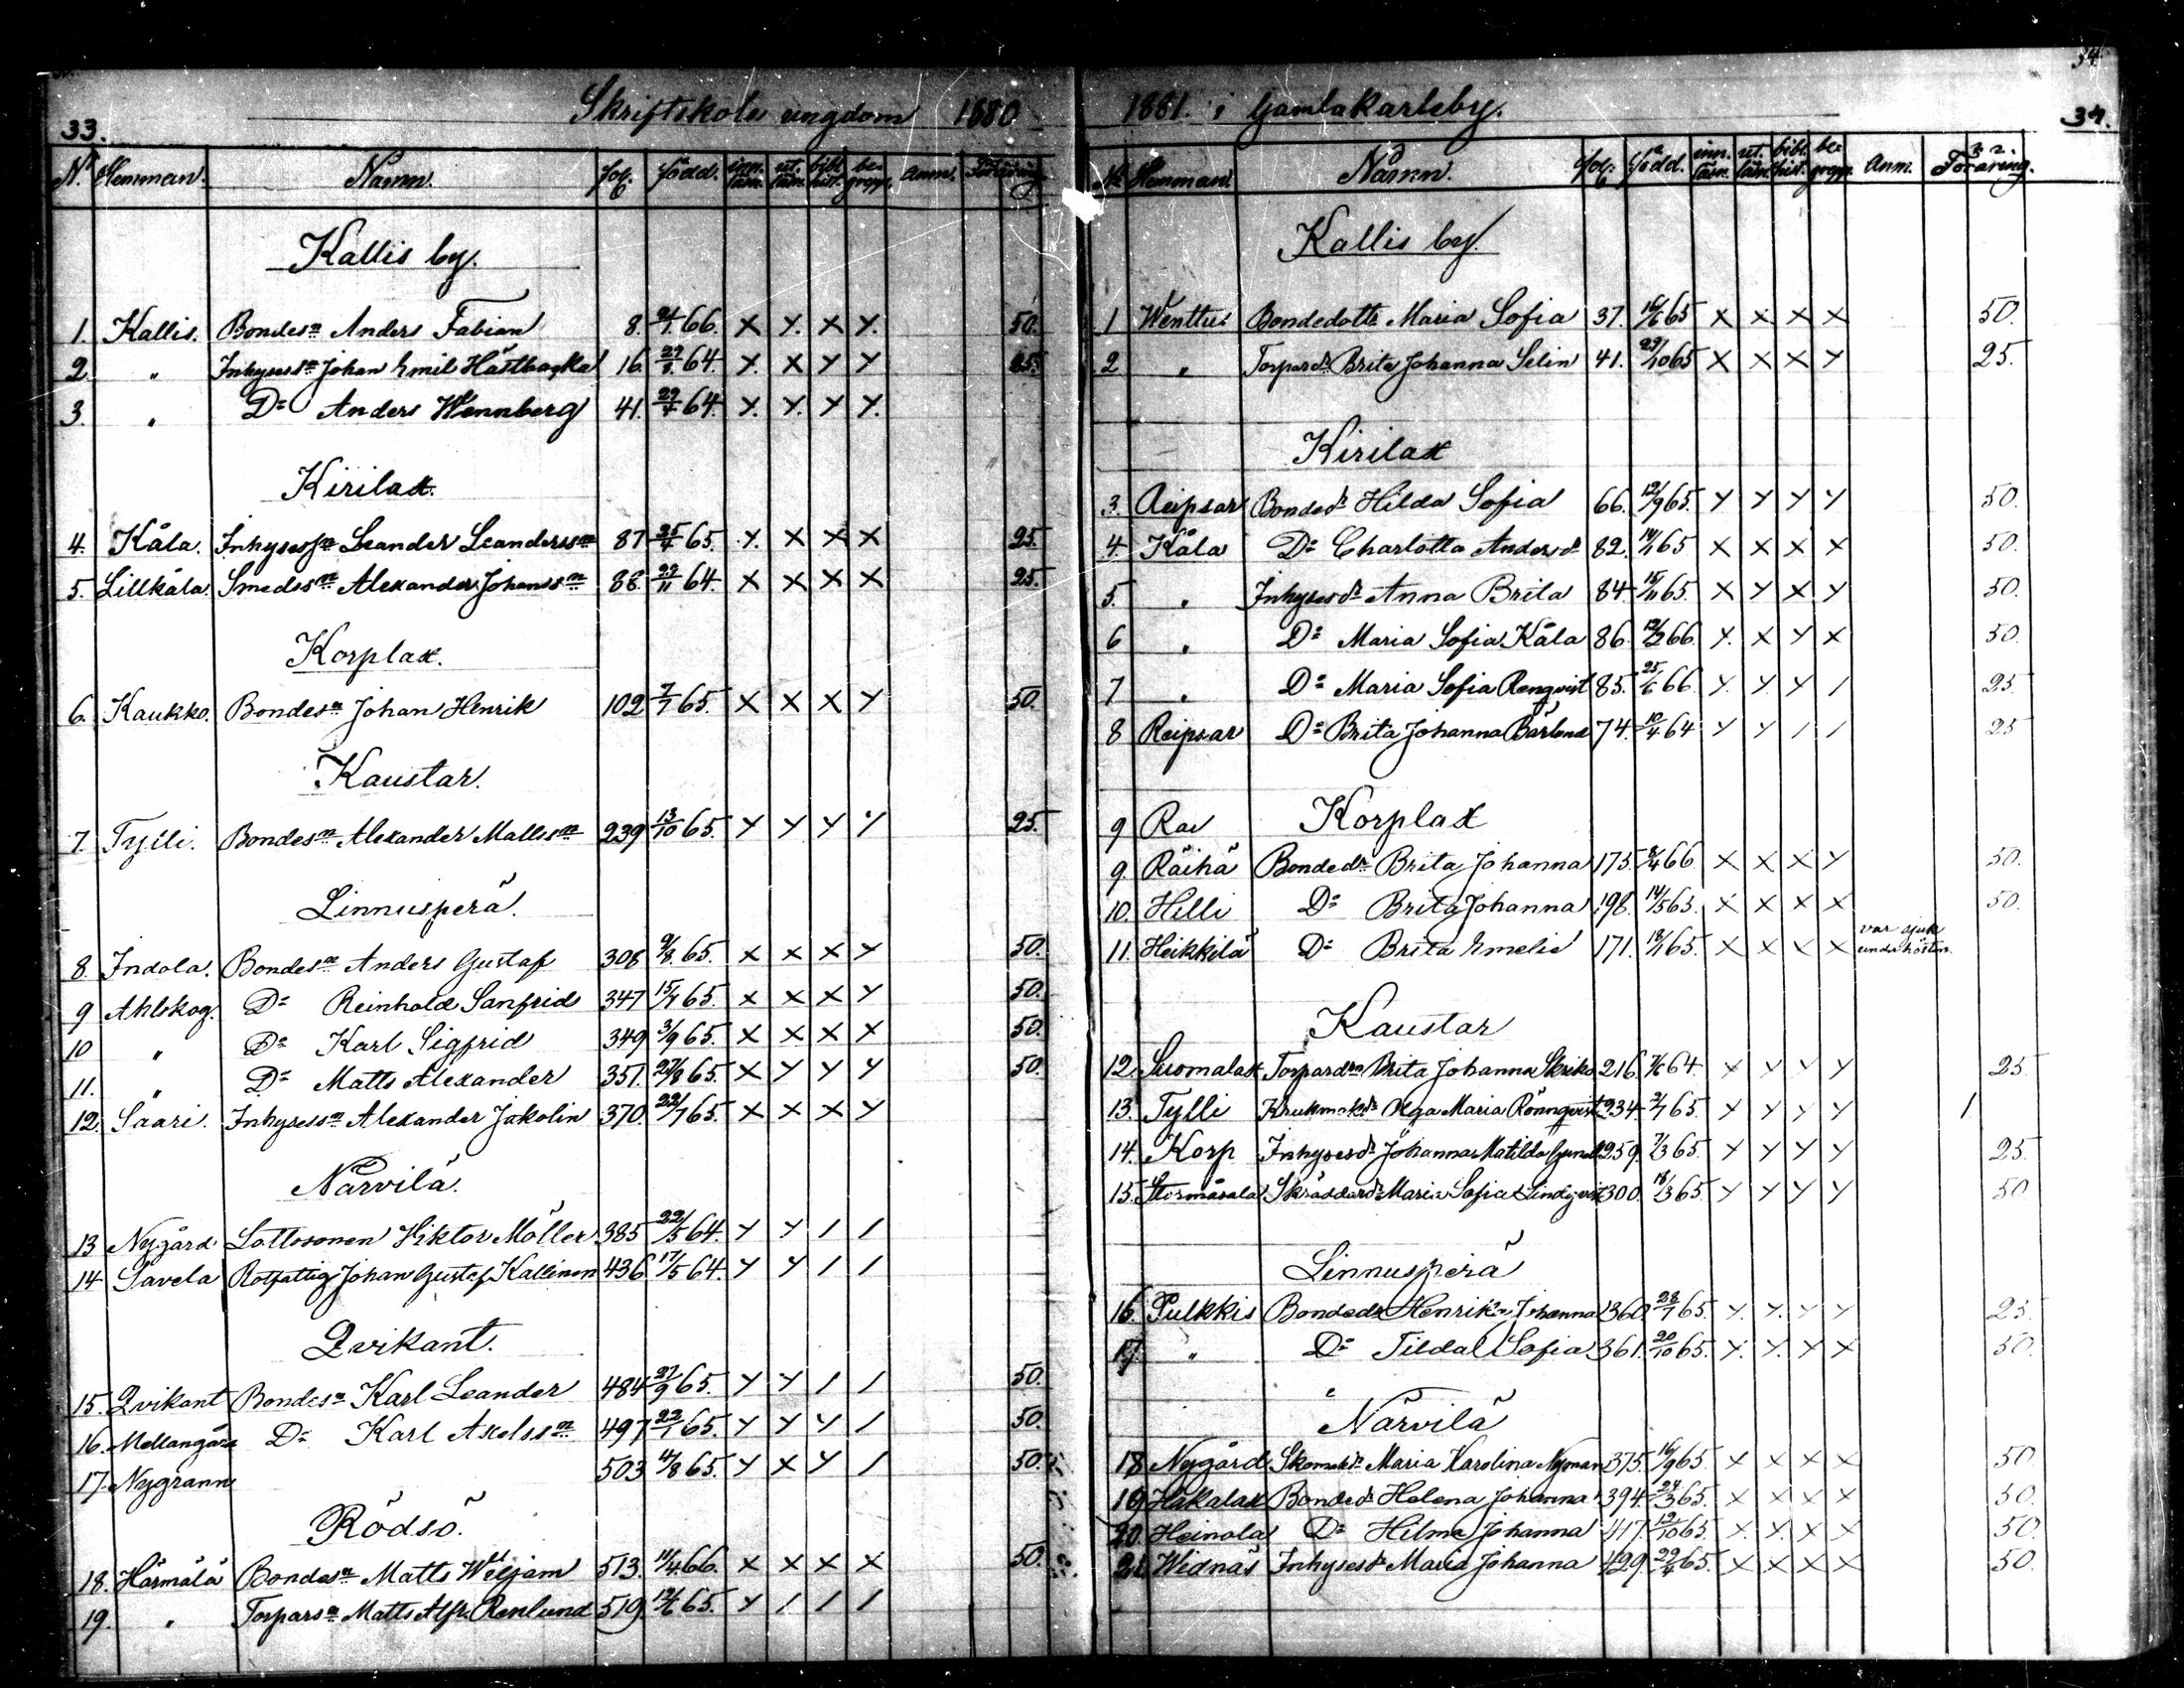 33.
Skriftskole ungdom 1880
Nr. Hemman. Namn. fol. född. inn. läsn. ut. läsn. bibl. hist. be- grepp. Anm.
Kallis by.
1. Kallis. Bondesn Anders Fabian 8. 66. x y. x y. 50.
2. " Inhysessn Johan Emil Hästbacka 16. 64. y. x y y 25.
3. " Do Anders Wennberg 41. 29/4 64. y. y. y y.
Kirilax.
4. Kåla. Inhysessn Leander Leanderssn 87 25/4 65. y. x x x 25.
5. Lillkåla. Smedssn Alexander Johanssn 88. 29/11 64. x x x x 25.
Korplax.
6. Kaukko. Bondesn Johan Henrik 102 7/7 65. x x x y 50.
Kaustar.
7. Tylli. Bondesn Alexander Mattssn 239 13/10 65. y y y y 25.
Linnusperä.
8. Indola. Bondesn Anders Gustaf 308 9/8 65. x x x y 50.
9 Ahlskog. Do Reinhold Sanfrid 347 15/7 65. x x x y 50.
10 " Do Karl Sigfrid 349 3/9 65. x x x x 50.
11. " Do Matts Alexander 351. 27/8 65. x y y y 50.
12. Saari. Inhysessn Alexander Jakolin 370. 22/7 65. x x x y
Närvilä.
13 Nygård Lottosonen Viktor Möller 385 22/5 64. y y / /
14 Savela Rotfattig Johan Gustaf Kallinen 436 17/5 64. y y / /
Qvikant.
15. Qvikant Bondesn Karl Leander 484 27/9 65. y y / / 50.
16. Mellangård Do Karl Axelssn 497 22/1 65. y y y / 50.
17. Nygrann 503 11/8 65. y x y / 50.
Rödsö.
18. Härmälä Bondesn Matts Wiljam 513. 11/4 66. x x x x 50.
19. " Torparsn Matts Alfr. Renlund 519 12/6 65. y / / /
34.
1881. i Gamlakarleby.
34.
No Hemman. Namn. fol. född. inn. läsn. ut. läsn. bibl. hist. be- grepp. Anm. Föraring.
Kallis by.
1 Wenttus Bondedottr Maria Sofia 37. 16/6 65 x x x x 50.
2 " Torpardr Brita Johanna Selin 41. 29/10 65 x x x y 25.
Kirilax
3. Reipsar Bondedr Hilda Sofia 66. 12/9 65. y y y y 50.
4. Kåla Do Charlotta Andersdr 82. 65 x x x x 50.
5. " Inhysesdr Anna Brita 84 15/11 65. x y x y 50.
6 " Do Maria Sofia Kåla 86. 12/2 66. y. x y x 50.
7 " Do Maria Sofia Renqvist 85. 25/6 66. y. y. y / 25.
8 Reipsar Do Brita Johanna Bärlund 74. 10/4 64 y y / / 25
9 Rai Korplax
9. Räihä Bondedr Brita Johanna 175. 8/4 66 x x x y 50.
10. Hilli Do Brita Johanna 198. 14/5 65. x x x x 50.
11. Heikkilä Do Brita Emelie 171. 18/1 65. x x x x var sjuk under hösten.
Kaustar
12. Suomalax Torpardr Brita Johanna Skriko 216. 64. y y y y 25.
13. Tylli Krukmakdr Olga Maria Rönnqvist 234 2/7 65. y y y y 1.
14. Korp Inhysesdr Johanna Matilda 259. 7/3 65. y y y y 25.
15. Stormåsala Skräddardr Maria Sofia Lindqvist 300. 18/3 65. y y y y 50
Linnusperä
16. Pulkkis Bondedr Henrika Johanna 360. 28/7 65. y. y. y y 25.
17. " Do Tilda Sofia 361. 20/10 65. y. y. x x 50.
Närvilä
18 Nygård Skomakdr Maria Karolina Nyman 375. 16/9 65. x x x x 50.
19 Hakalax Bondedr Helena Johanna 394. 24/3 65. x x x x 50.
20. Heinola Do Hilma Johanna 417. 19/10 65. x. x. x x 50.
21. Widnäs Inhysesdr Maria Johanna 429. 29/4 65. x x x x 50.